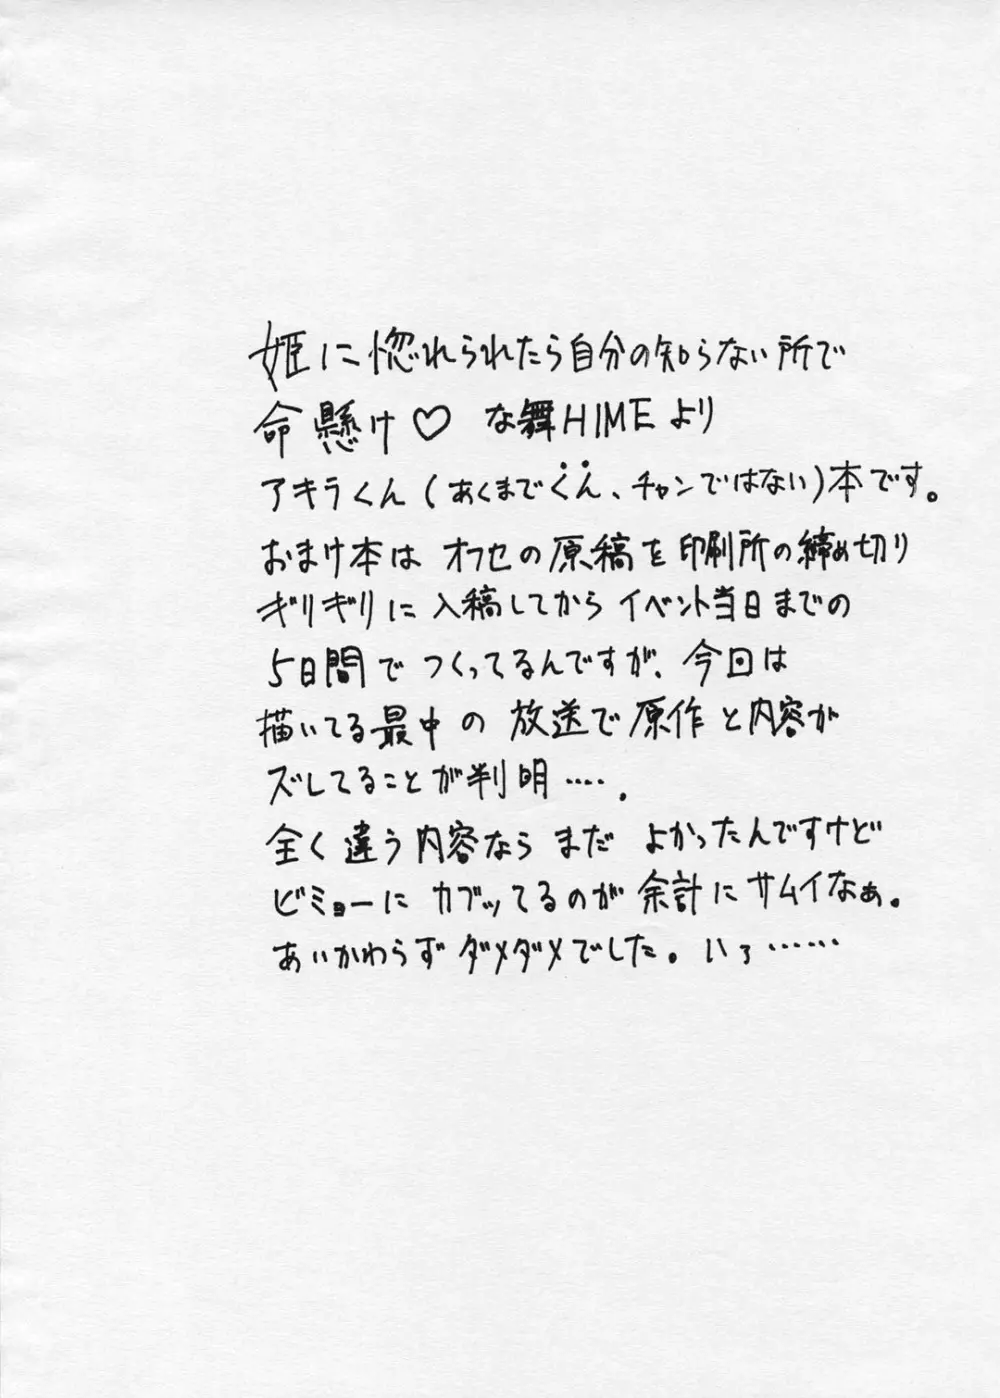 姫に惚れられたら自分の知らない所で
命懸け♡ な舞HIMEより
アキラくん(あくまでくん、チャンではない)本です。
おまけ本は オフセの原稿を印刷所の締め切り
ギリギリに入稿してから イベント当日までの
5日間でつくってるんですが、今回は
描いてる最中の放送で原作と内容が
ズレてることが判明‥‥.
全く違う内容なら まだ よかったんですけど
ビミョーに カブッてるのが余計にサムイなぁ。
あいかわらず ダメダメでした。いろ‥‥‥